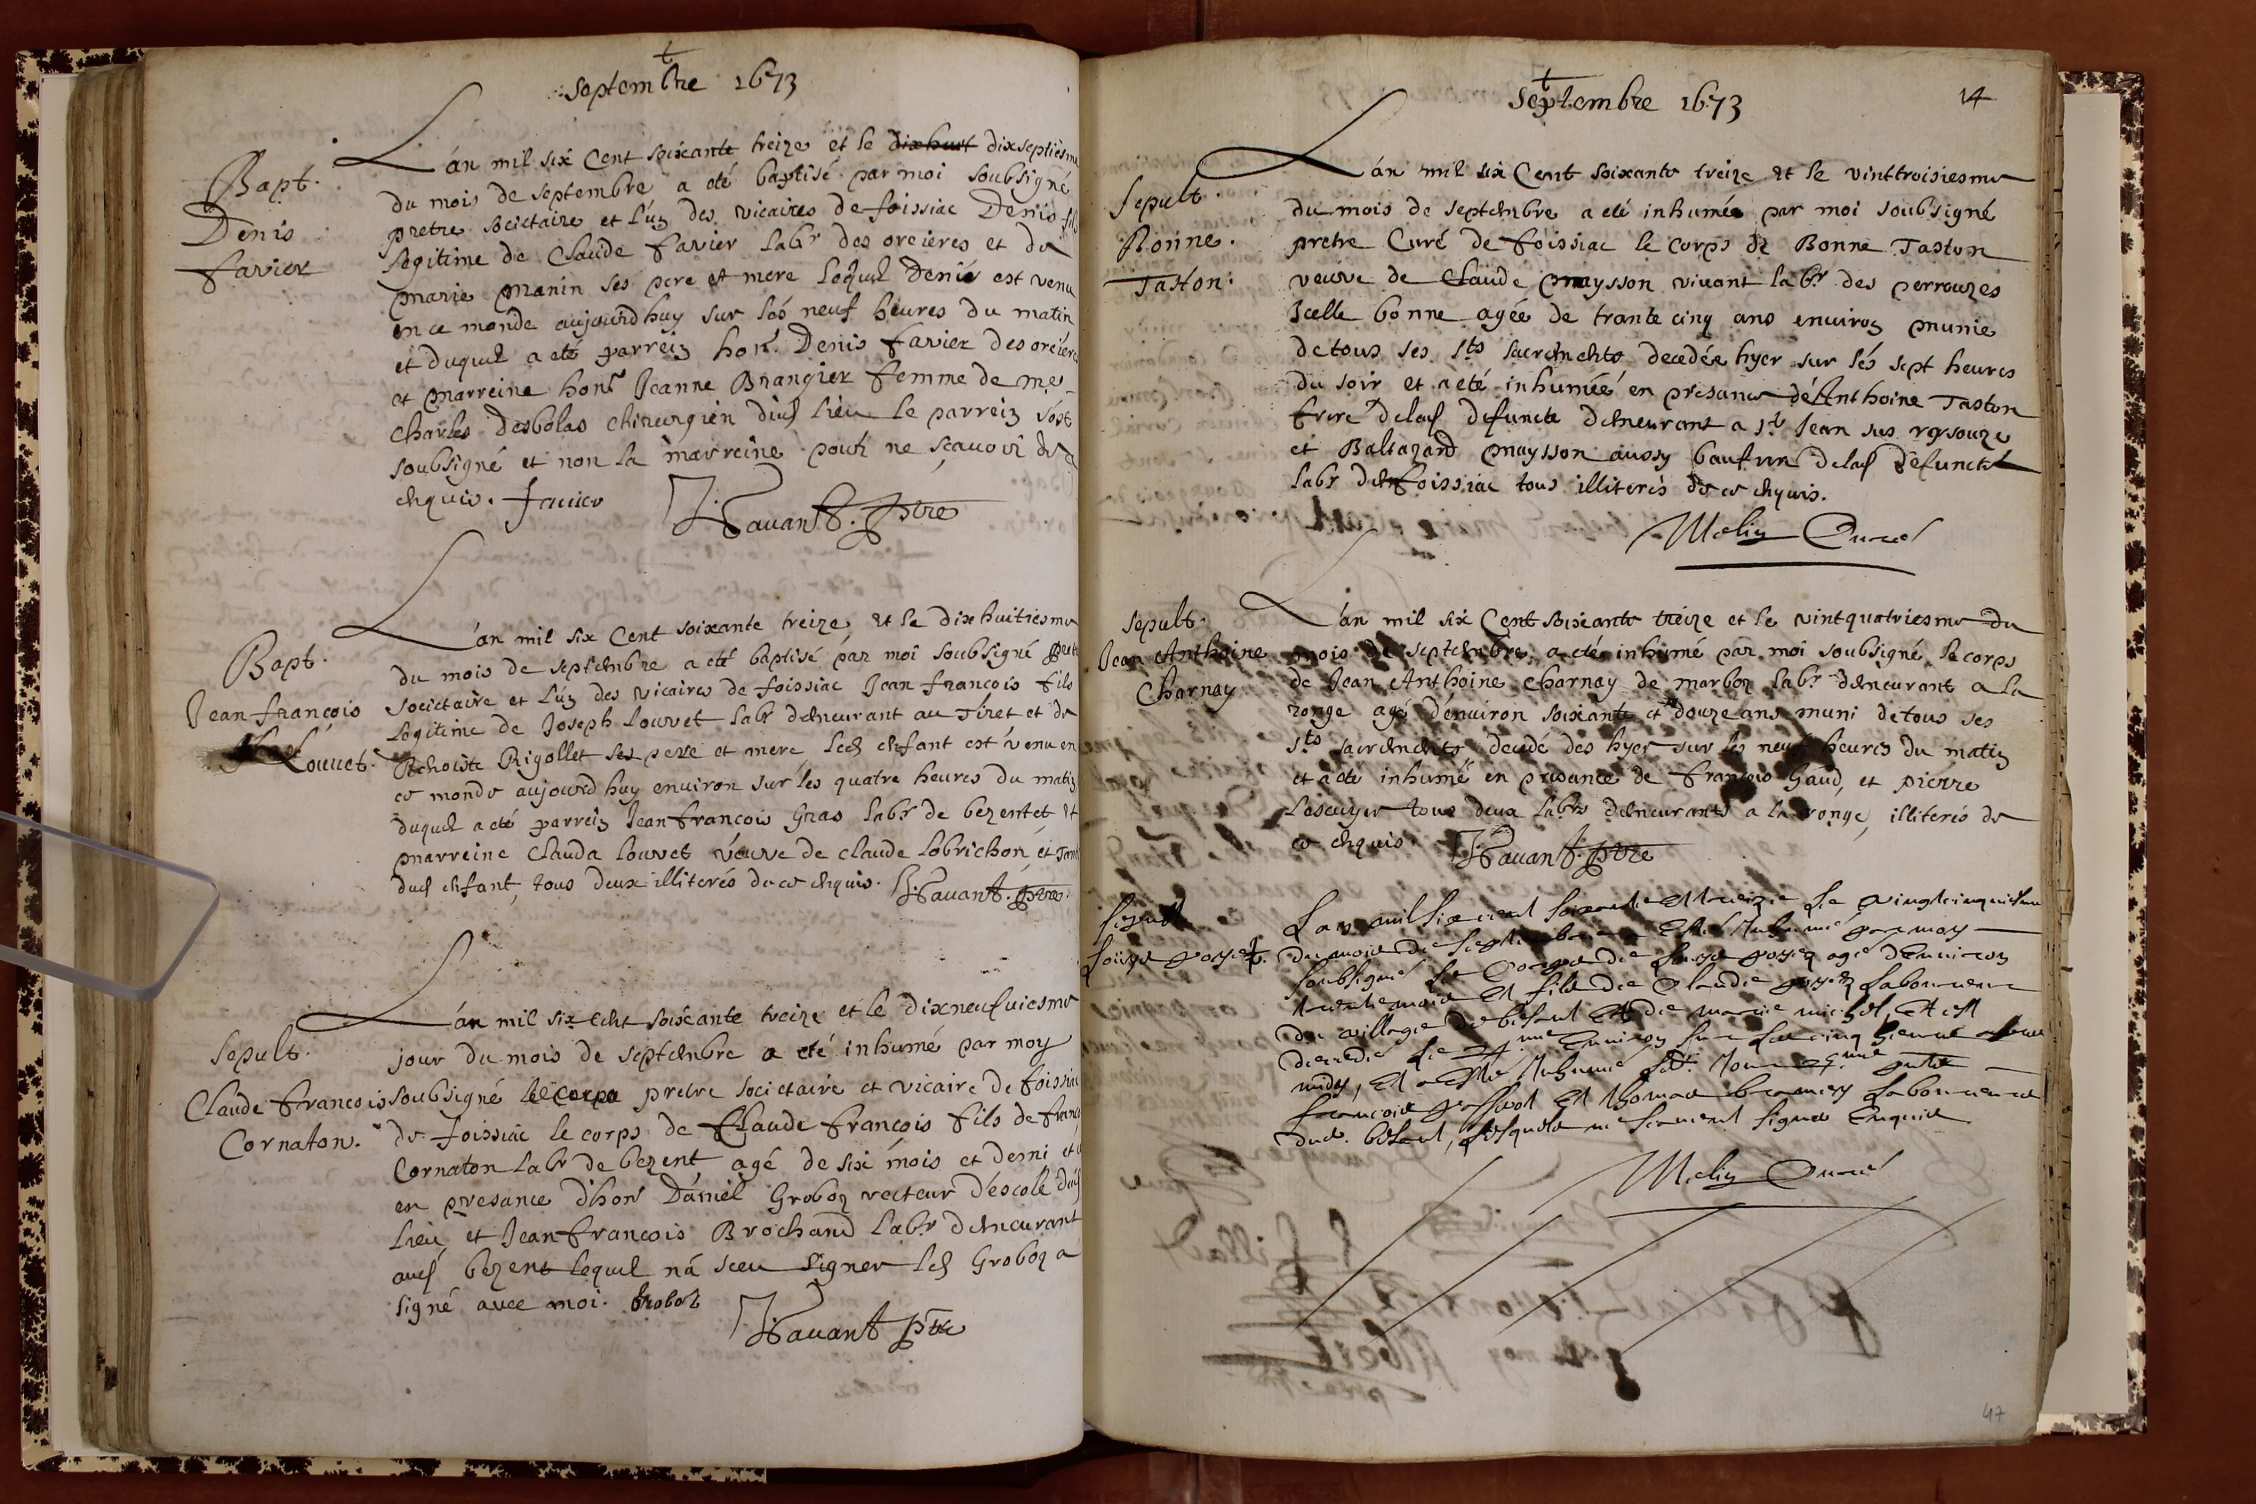 Septembre 1673
Bapt.
Denis
favier
L'an mil six Cent soixante treize et le dixhuit dixseptiesme
du mois de septembre a eté baptisé par moi soubsigné
pretre societaire et l'un des vicaires de foissiac Denis fils
legitime de Claude favier labr des orcieres et de
marie manin ses pere et mere lequel Denis est venu
en ce monde aujourdhuy sur les neuf heures du matin
et duquel a eté parrein hon. Denis favier des orcieres
et marreine hon Jeanne Brangier femme de me
Charles desbolas chirurgien dud lieu le parrein s'est
soubsigné et non la marreine pour ne scavoir de ce
enquis. favier Pavant. ptre
Bapt.
Jean françois
Louvet.
L'an mil six Cent soixante treize et le dix huitiesme
du mois de septembre a eté baptisé par moi soubsigné pretre
societaire et l'un des vicaires de foissiac Jean françois fils
legitime de Joseph louvet labr demeurant au Tiret et de
Benoiste Rigollet ses pere et mere led enfant est venu en
ce monde aujourdhuy environ sur les quatre heures du matin
duquel a eté parrein Jean francois Gras labr de bezentet et
marreine Clauda louvet veuve de claude lobrichon et
dud enfant, tous deux illiterés de ce enquis. Pavant. ptre.
Sepult.
Claude francois
Cornaton.
L'an mil six cent soixante treize et le dixneufviesme
jour du mois de septembre a eté inhumé par moy
soubsigné le corps pretre societaire et vicaire de foissiac
de foissiac le corps de Claude françois fils de franç
Cornaton labr de bezent agé de six mois et demi et
en presance d'hon Daniel Grobon recteur d'escole dud
lieu et Jean françois Brochand labr demeurant
aud bezent lequel n'a sceu signer led Grobon a
signé avec moi. Grobon
Pavant ptre
Septembre 1673
14
Sepult.
Bonne.
Taston.
L'an mil six Cent soixante treize et le vinttroisiesme
du mois de septembre a eté inhumée par moi soubsigné
pretre Curé de foissiac le corps de Bonne Taston
veuve de Claude maysson vivant labr des perrouzes
Icelle bonne agée de trante cinq ans environ munie
de tous ses sts sacrements decedée hyer sur les sept heures
du soir et a eté inhumée en presance de Anthoine Taston
frere delad defuncte demeurant a st Jean sus reysouze
et Baltazard maysson aussy baufrere delad defuncte
labr de foissiac tous illiterés de ce enquis.
Melin Curé
Sepult.
Jean Anthoine
Charnay
L'an mil six Cent soixante treize et le vintquatriesme du
mois de septembre, a eté inhumé par moi soubsigné le corps
de Jean Anthoine charnay de marboz labr demeurant a la
ronge agé d'environ soixante et douze ans muni de tous ses
sts sacrements decedé des hyer sur les neuf heures du matin
et a eté inhumé en presance de françois Gaud, et pierre
Lescuyer tous deux labrs demeurants a la ronge, illiterés de
ce enquis. Pavant. ptre
Sepult
Louys poyet.
L'an mil six cent soixante et treize le vingtcinquiesme
du mois de septembre a esté Inhumé par moy
soubsigné le corps de Louys poyet agé d'environ
trente mois et fils de Claude poyet laboureur
du village de besent et de marie michel, et est
decedé le 24me environ sur les cinq heures
midy, et a esté Inhumé led. Jour 25me
françois passot et thomas laboureurs
dud. besent, lesquels ne scavent signer Enquis
Melin Curé
47